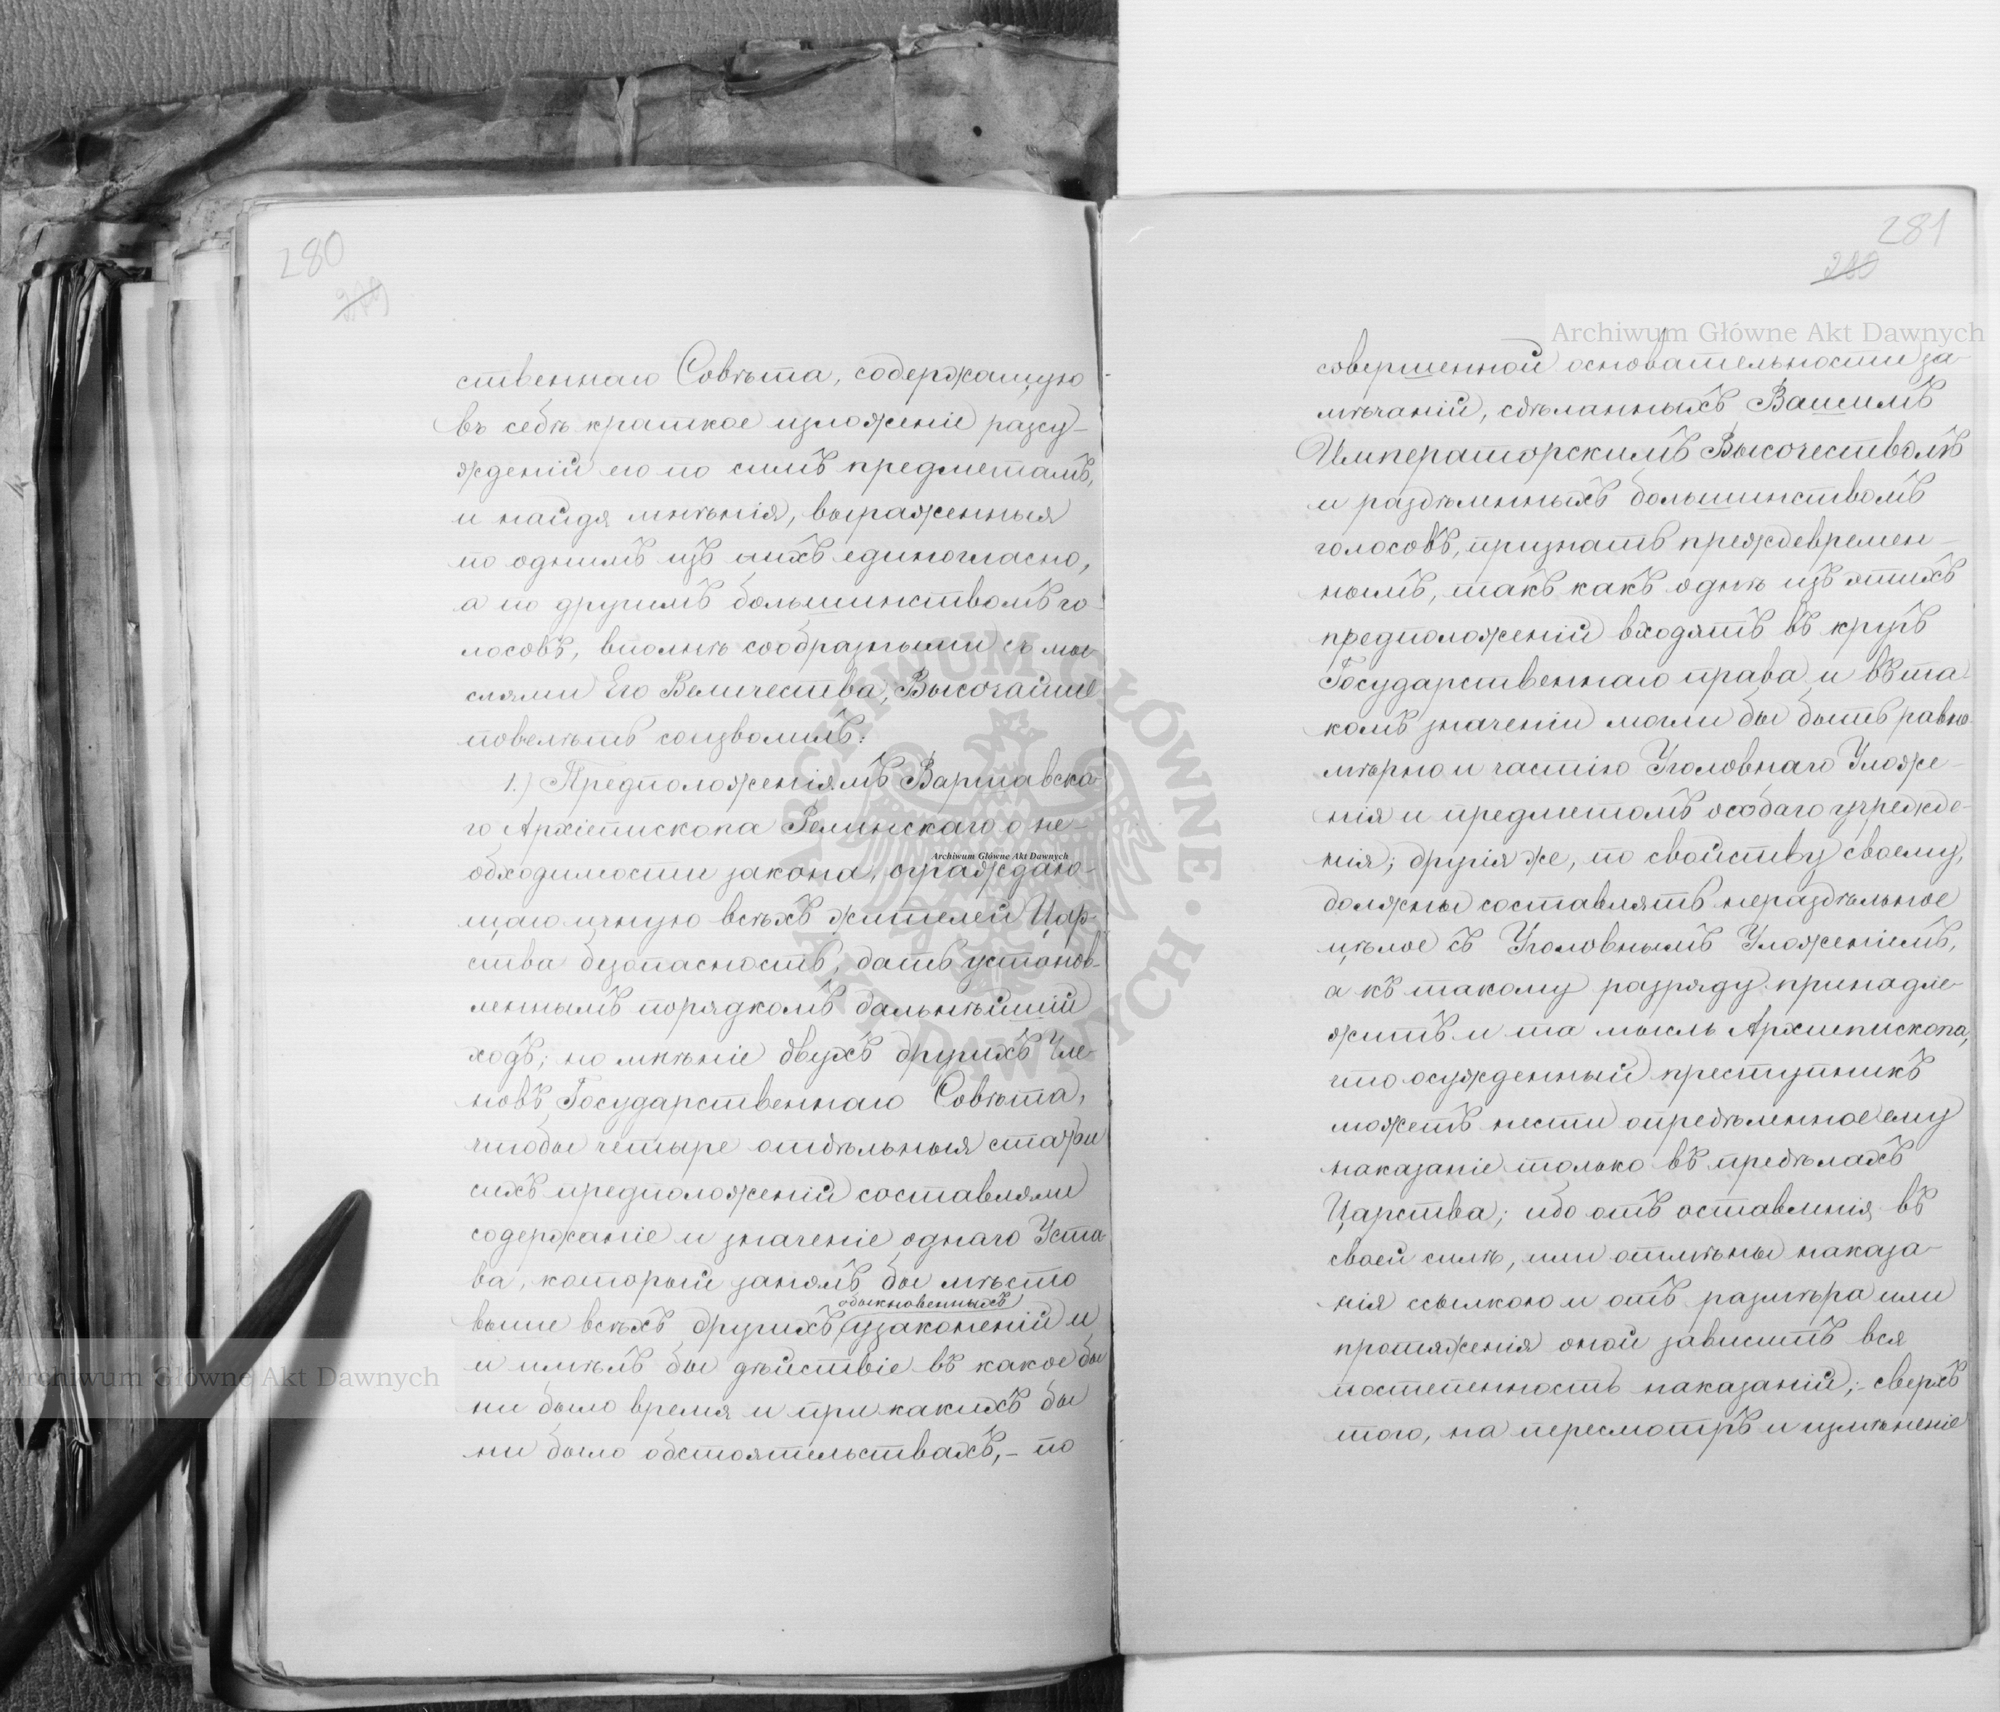 280
279
ственнаго Совѣта, содержащую
въ себѣ краткое изложеніе разсу-
жденій его по симъ предметамъ,
и найдя мнѣнія, выраженныя
по однимъ изъ нихъ единогласно,
а по другимъ большинствомъ го-
лосовъ, вполнѣ сообразными съ мы-
слями Его Величества, Высочайше
повелѣть соизволилъ:
1.) Предположеніямъ Варшавска-
го Архіепископа Фелинскаго о не-
обходимости закона, ограждаю-
щаго личную всѣхъ жителей Цар-
ства безопасность, дать установ-
леннымъ порядкомъ дальнѣйшій
ходъ; но мнѣніе двухъ другихъ Чле-
новъ Государственнаго Совѣта,
чтобы четыре отдѣльныя статьи
сихъ предположеній составляли
содержаніе и значеніе однаго Уста-
ва, который занялъ бы мѣсто
обыкновенныхъ
выше всѣхъ другихъ узаконеній и
и имѣлъ бы дѣйствіе въ какое бы
ни было время и при какихъ бы
ни было обстоятельствахъ, - по
281
280
совершенной основательности за-
мѣчаній, сдѣланныхъ Вашимъ
Императорскимъ Высочествомъ
и раздѣленныхъ большинствомъ
голосовъ, признать преждевремен-
нымъ, такъ какъ однѣ изъ этихъ
предположеній входятъ въ кругъ
Государственнаго права и въ та-
комъ значеніи могли бы быть равно-
мѣрно и частію Уголовнаго Уложе-
нія и предметомъ особаго учрежде-
нія; другія же, по свойству своему,
должны составлять нераздѣльное
цѣлое съ Уголовнымъ Уложеніемъ,
а къ такому разряду принадле-
житъ и та мысль Архиепископа,
что осужденный преступникъ
можетъ нести опредѣленное ему
наказаніе только въ предѣлахъ
Царства; ибо отъ оставленія въ
своей силѣ, или отмѣны наказа-
нія ссылкою и отъ размѣра или
протяженія оной зависитъ вся
постепенность наказаній; - сверхъ
того, на пересмотръ и измѣненіе
Archiwum Główne Akt Dawnych
Archiwum Główne Akt Dawnych
Archiwum Główne Akt Dawnych
ARCHIWUM GŁÓWNE AKT DAWNYCH